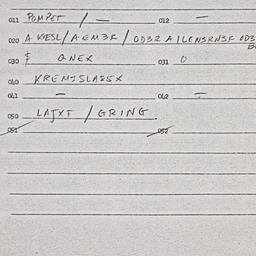 011 POMPET / — 012 —
020 A VESL / A EM3R / OD32 A
030 $ QNEX 031 0
040 KREMISLA25X
041 — 042 —
050 LAJXT / GRING
051 052